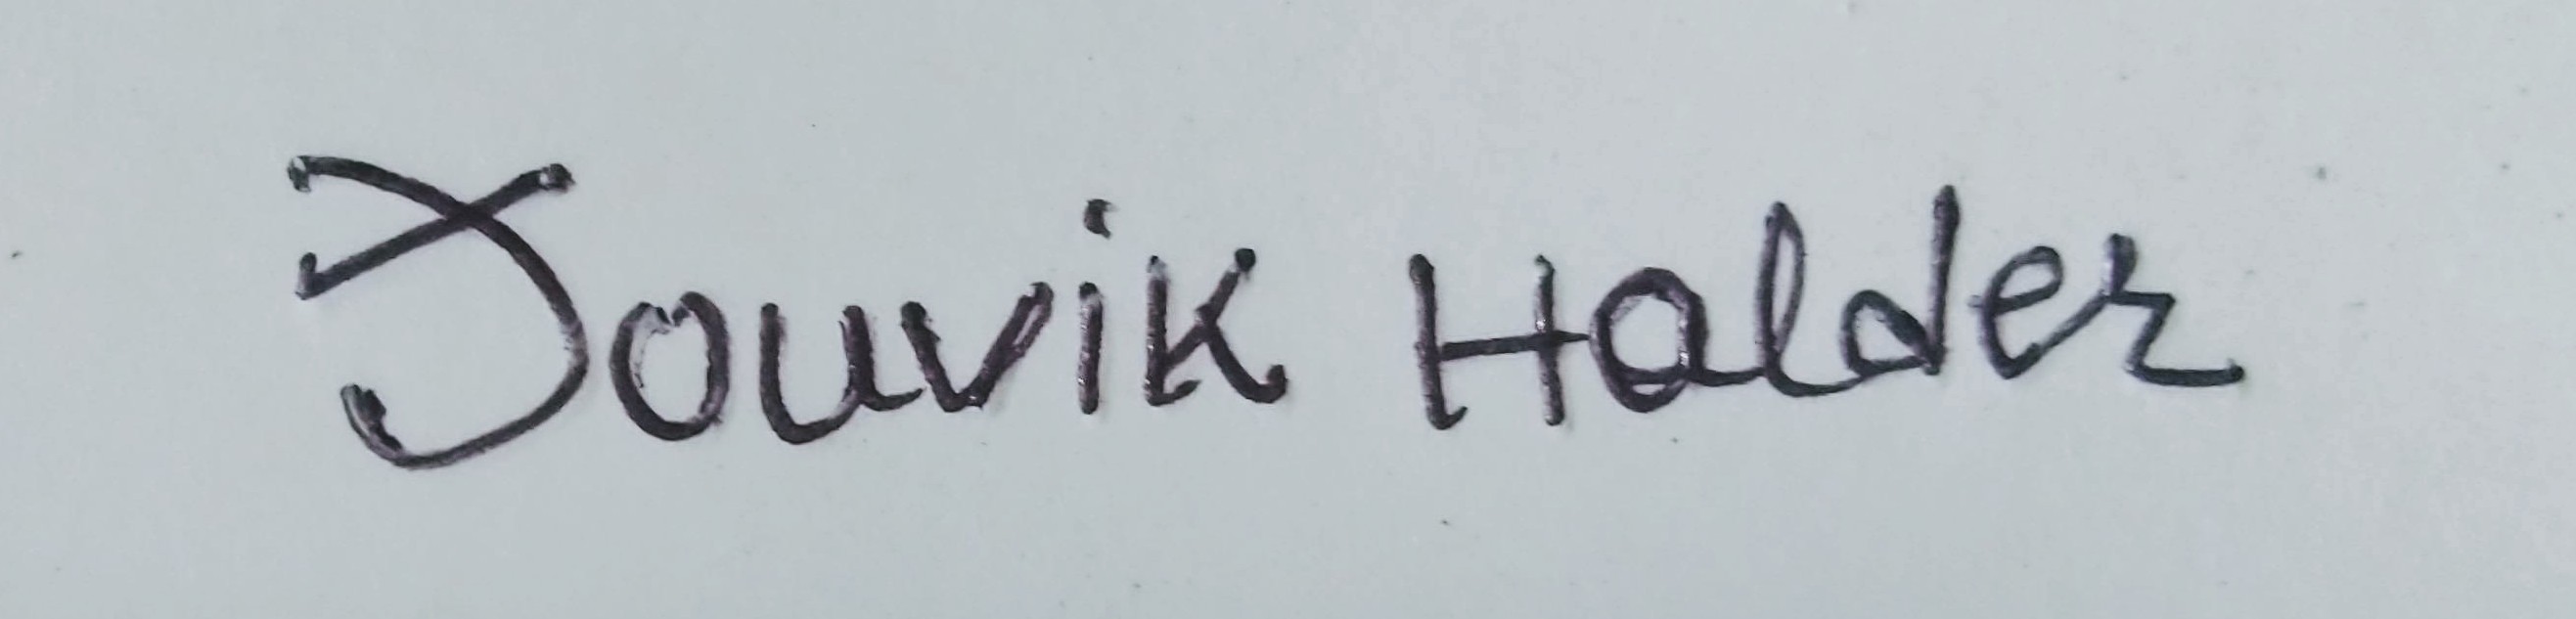 Jouvik Halder